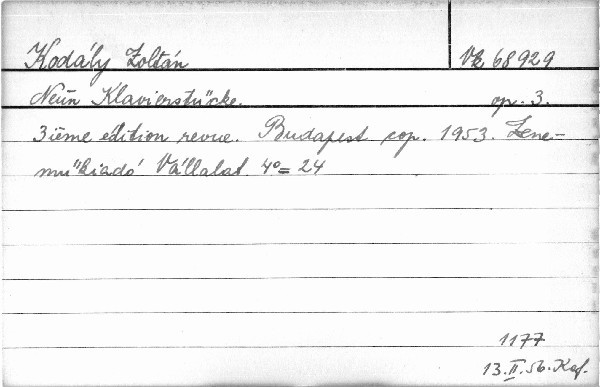 Kodály Zoltán Vk 68929
Neün Klavierstücke. op. 3.
3ième edition revue. Budapest cop. 1953. Zene-
műkiadó Vállalat 4°= 24
1177
13.II.56. Kaf.